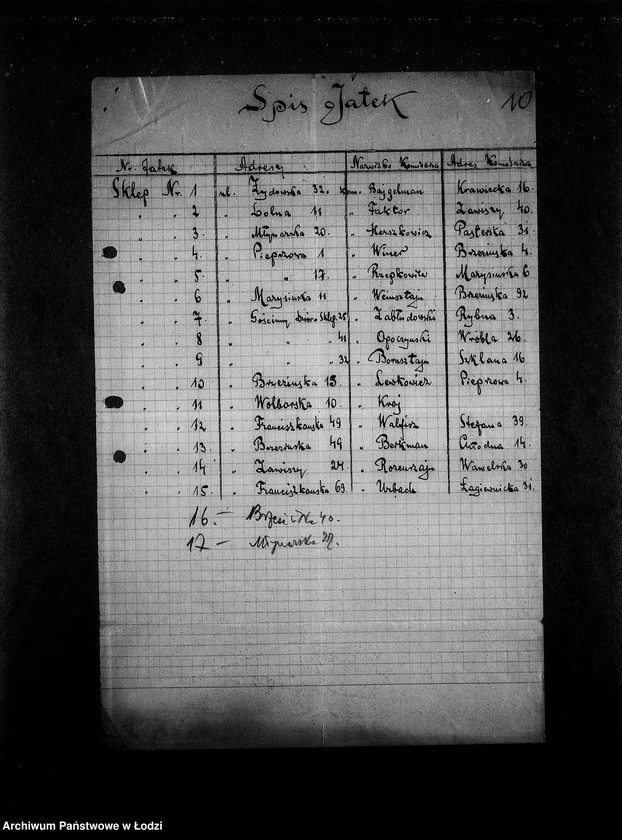 Spis Jatek
10
Nr. Jatek Adresy Nazwisko Komisarza Adres Komisarza
Sklep Nr. 1 ul. Żydowska 32. kom. Bajgelman Krawiecka 16.
" " 2 " Dolna 11 " Faktor Zawiszy 40.
" " 3. " Młynarska 20. " Herszkowicz Pasterska 31.
" " 4. " Pieprzowa 1 " Winer Brzezińska 4.
" " 5. " " 17. " Rzepkowicz Marysińska 6
" " 6 " Marysińska 11 " Weinsztajn Brzezińska 92
" " 7 " Gościnny Dwór-Sklep. 25 " Zabłudowski Rybna 3.
" " 8 " " " 41 " Opoczyński Wróbla 26.
" " 9 " " " 32 " Bornsztajn Szklana 16
" " 10 " Brzezińska 15. " Lewkowicz Pieprzowa 4.
" " 11 " Wolborska 10. " Kroj
" " 12 " Franciszkańska 49 " Walfisz Stefana 39.
" " 13. " Brzezińska 49 " Berkman Chłodna 14.
" " 14 " Zawiszy 24 " Rozensztajn Wawelska 30
" " 15. " Franciszkańska 69. " Urbach Łagiewnicka 31.
16. — 40.
17 — Młynarska
Archiwum Państwowe w Łodzi